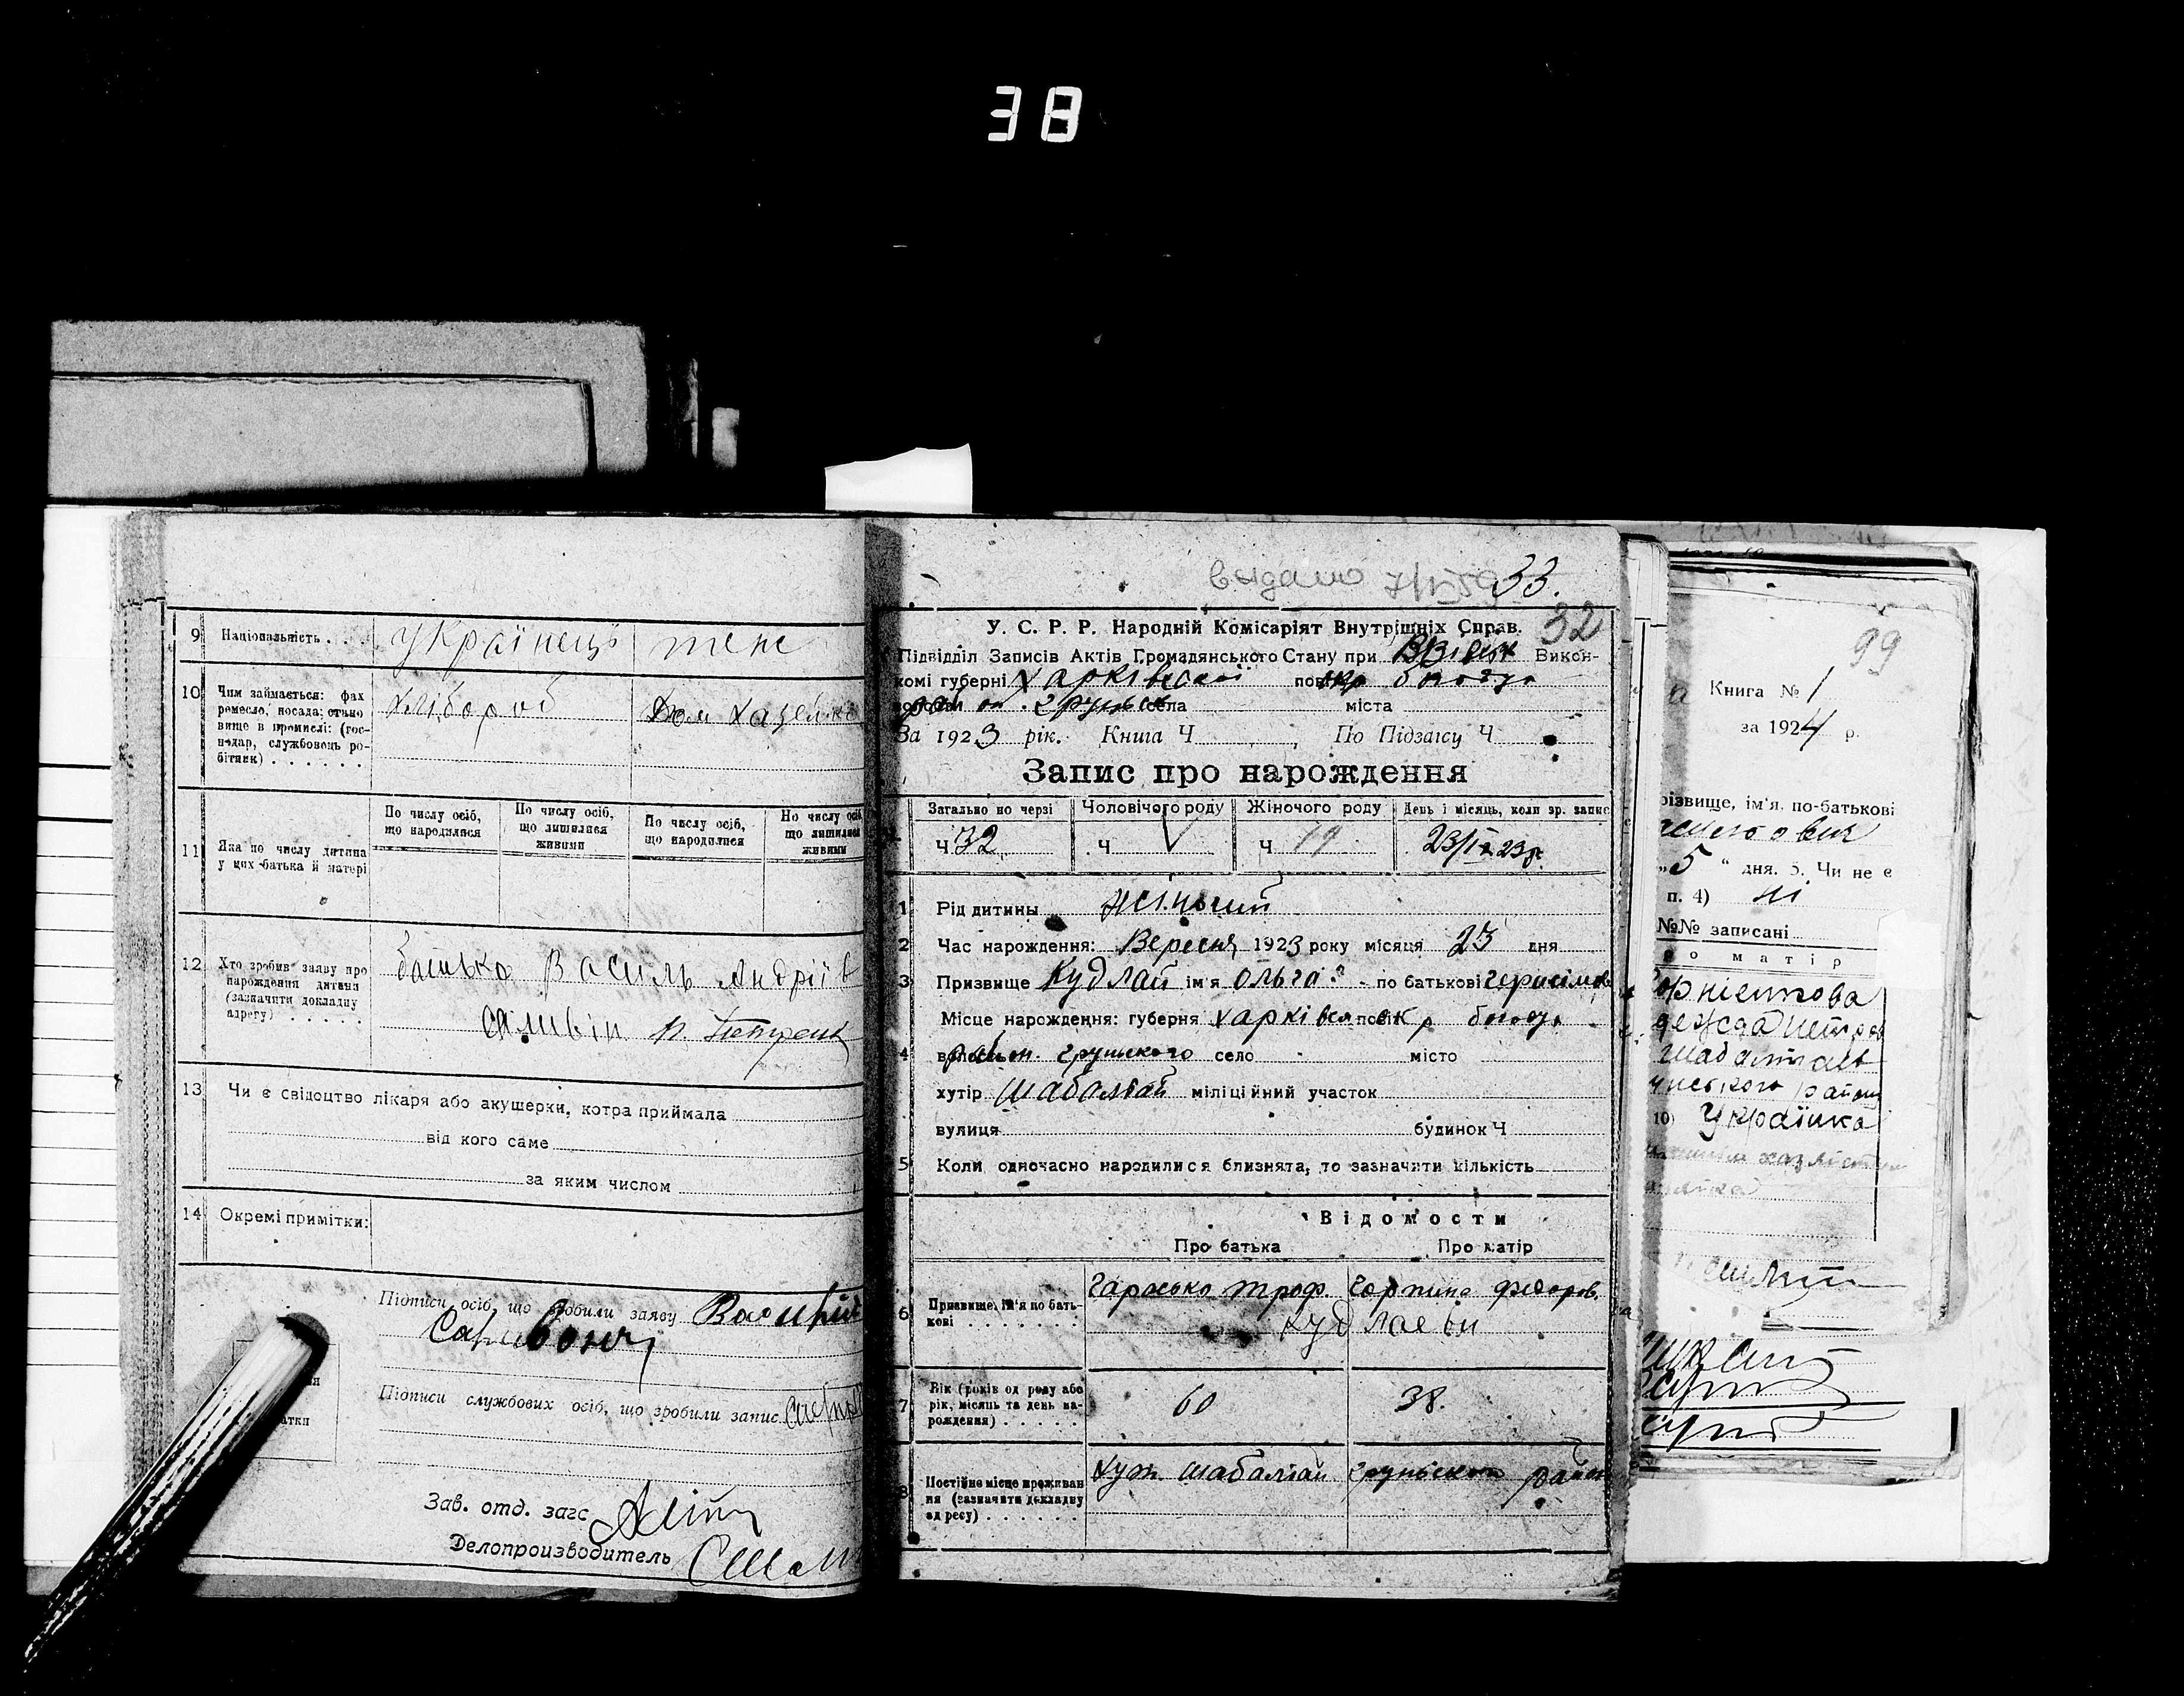 38
9 Національність . . . Українець теж
10 Чим займається: фах
ремесло, посада; стано
вище в промислі: (гос-
подар, службовець ро-
бітник) . . . . . .
хлібороб
Дом хазяйка
11 Яка по числу дитина
у цих батька й матері
По числу осіб,
що народилися
По числу осіб,
що лишилися
живими
По числу осіб,
що народилися
По числу осіб
що лишилися
живими
12 Хто зробив заяву про
нарождення дитини
(зазначити докладну
адресу) . . . . .
батько Василь Андріїв
13 Чи є свідоцтво лікаря або акушерки, котра приймала
від кого саме
за яким числом
14 Окремі примітки:
Підписи осіб, що зробили заяву
Підписи службових осіб, що зробили запис
Зав. отд. загс
Делопроизводитель
выдано 33.
32
У. С. Р. Р. Народній Комісаріят Внутрішніх Справ.
Підвідділ Записів Актів Громадянського Стану при Викон-
комі губерні Харківської пов окр богод
район. грунськ села міста
За 1923 рік. Книга Ч , По Підзагсу Ч
Запис про нарождення
Загально по черзі Чоловічого роду Жіночого роду День і місяць, коли зр. запис
Ч 32 Ч V Ч 19 23/IX 23р.
1 Рід дитини жіночий
2 Час нарождення: Вересня 1923 року місяця 23 дня
3 Призвище Кудлай ім'я Ольга по батькові Герасімов
Місце нарождення: губерня Харківся повіт окр богод
4 район. грунського село місто
хутір Шабалтай міліційний участок
вулиця будинок Ч
5 Коли одночасно народилися близнята, то зазначити кількість
Відомости
Про батька Про матір
6 Призвище, ім'я по бать-
кові . . . . . . .
Гарасько Троф. Горпина Федоров.
Кудлаєви
7 Вік (років од роду або
рік, місяць та день на-
рождення) . . . . .
60 38.
8 Постійне місце прожіван
ня (зазначити докладну
адресу) . . . . . .
хут. Шабалтай грунського район
99
Книга № 1
за 1924 р.
різвище, ім'я, по-батькові
„5 “ дня. 5. Чи не є
п. 4) ні
№№ записані
ро матір
10) Українка